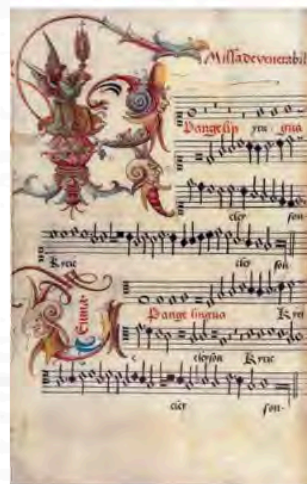 Missa de venerabil
Pange lin kyrie gua
eley son
Kyrie eley son
Pange lingua Kyri
e eleyson Kyrie
eley son.